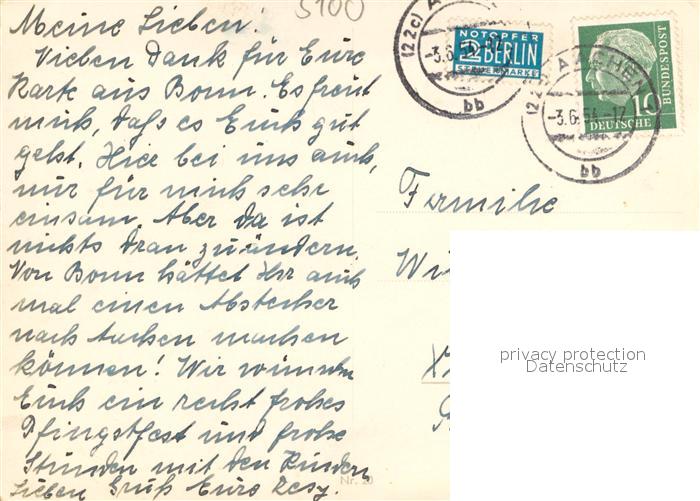 5100
Meine Lieben!
Vielen Dank für Eure
Karte aus Bonn. Es freut
mich, daß es Euch gut
geht. Hier bei uns auch,
nur für mich sehr
einsam. Aber da ist
nichts dran zu ändern.
Von Bonn hättet Ihr auch
mal einen Abstecher
nach Aachen machen
können! Wir wünschen
Euch ein recht frohes
Pfingstfest und frohe
Stunden mit den Kindern
Lieben Gruß Eure
NOTOPFER
2 BERLIN
STEUERMARKE
(22c) A
-3.6.54
bb
(22c) AACHEN
-3.6.54.-17
bb
10
DEUTSCHE
BUNDESPOST
Familie
Wi
privacy protection
Datenschutz
Nr. 20